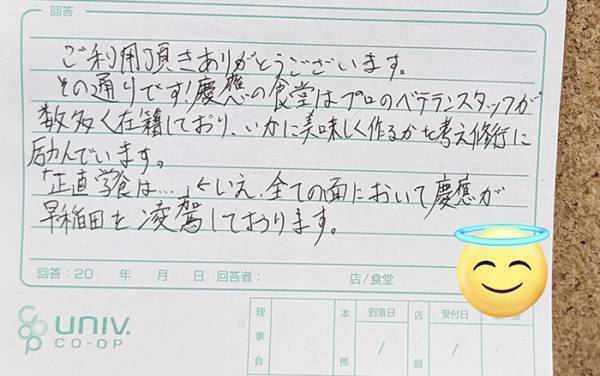 回答
ご利用頂きありがとうございます。
その通りです!慶應の食堂はプロのベテランスタッフが
数多く在籍しており、いかに美味しく作るかを考え修行に
励んでいます。
「正直学食は…」←いえ、全ての面において慶應が
早稲田を凌駕しております。
回答:20 年 月 日 回答者: 店/食堂
UNIV.
CO-OP
理事会
本部
到着日
/
店舗
受付日
/